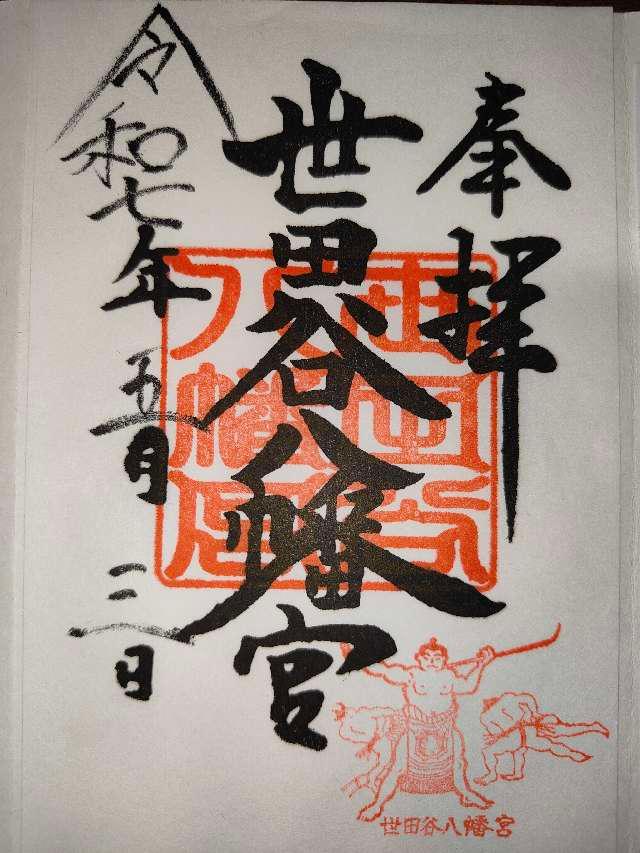 奉拝
世田谷八幡宮
令和七年五月三日
世田谷八幡宮
世田谷八幡宮